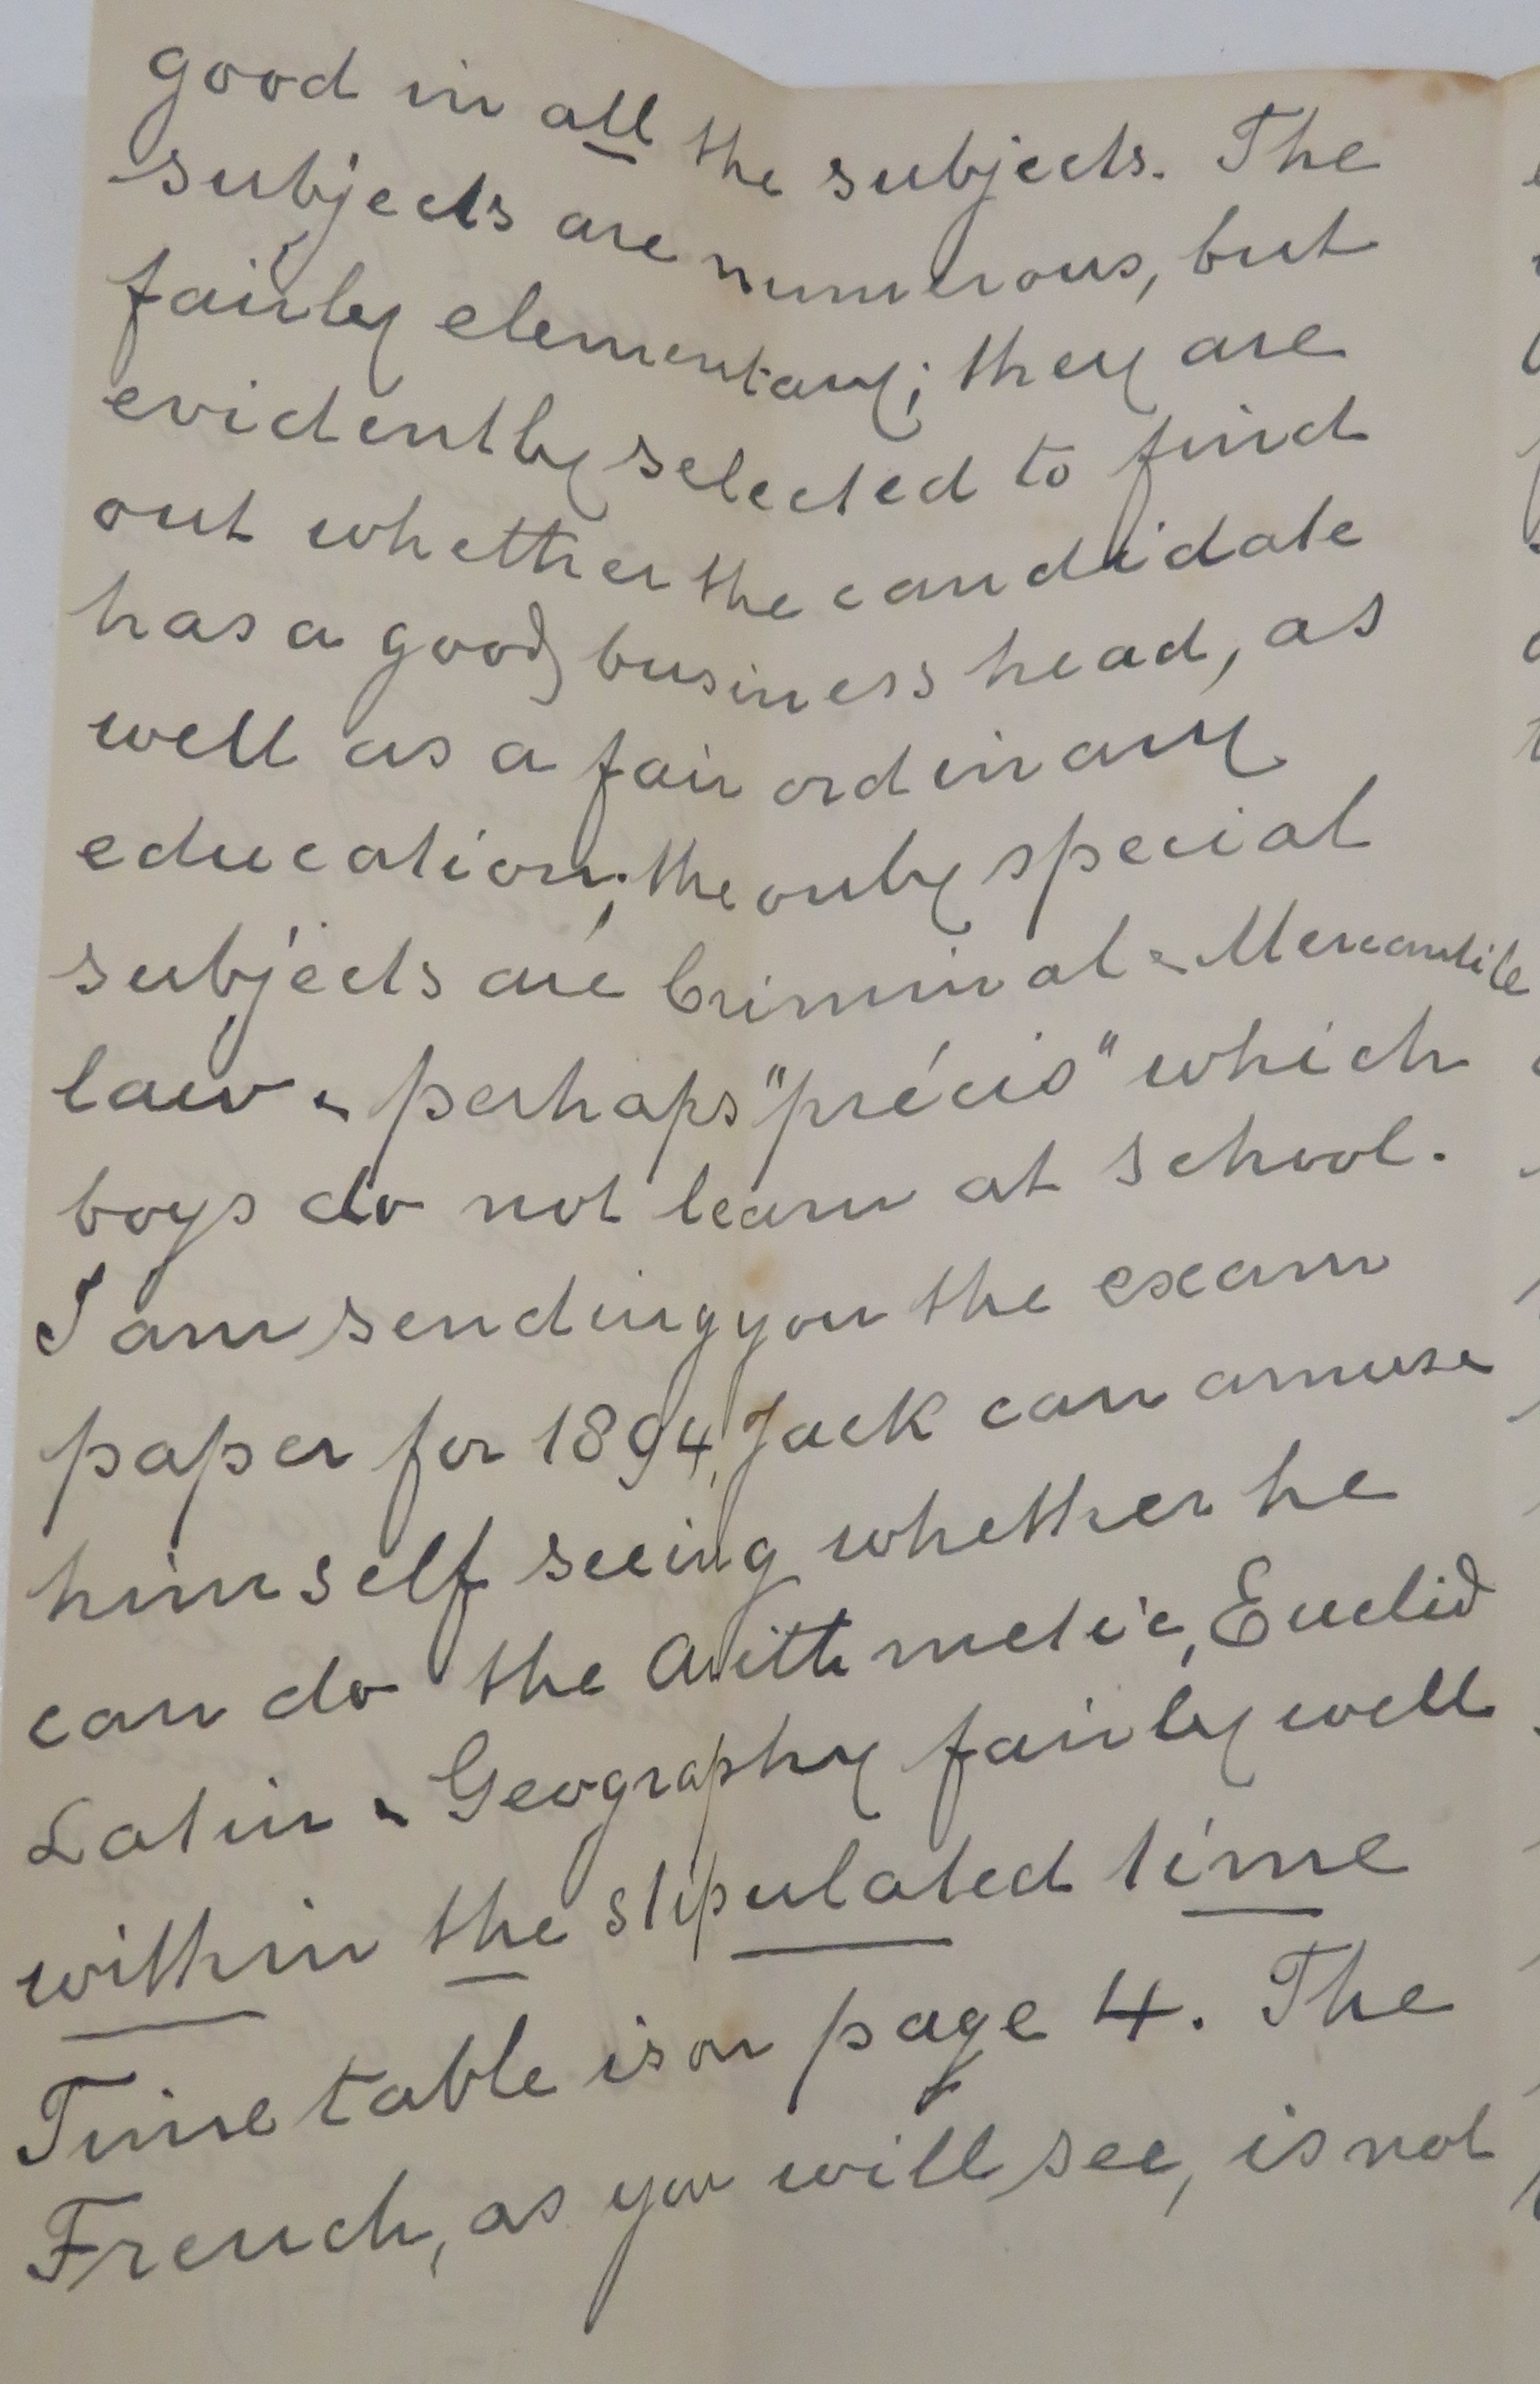 good in all the subjects. The
subjects are numerous, but
fairly elementary; they are
evidently selected to find
out whether the candidate
has a good business head, as
well as a fair ordinary
education; the only special
subjects are Criminal & Mercantile
law & perhaps "précis" which
boys do not learn at school.
I am sending you the exam
paper for 1894, Jack can amuse
himself seeing whether he
can do the Arithmetic, Euclid
Latin & Geography fairly well
within the stipulated time
Time table is on page 4. The
French, as you will see, is not